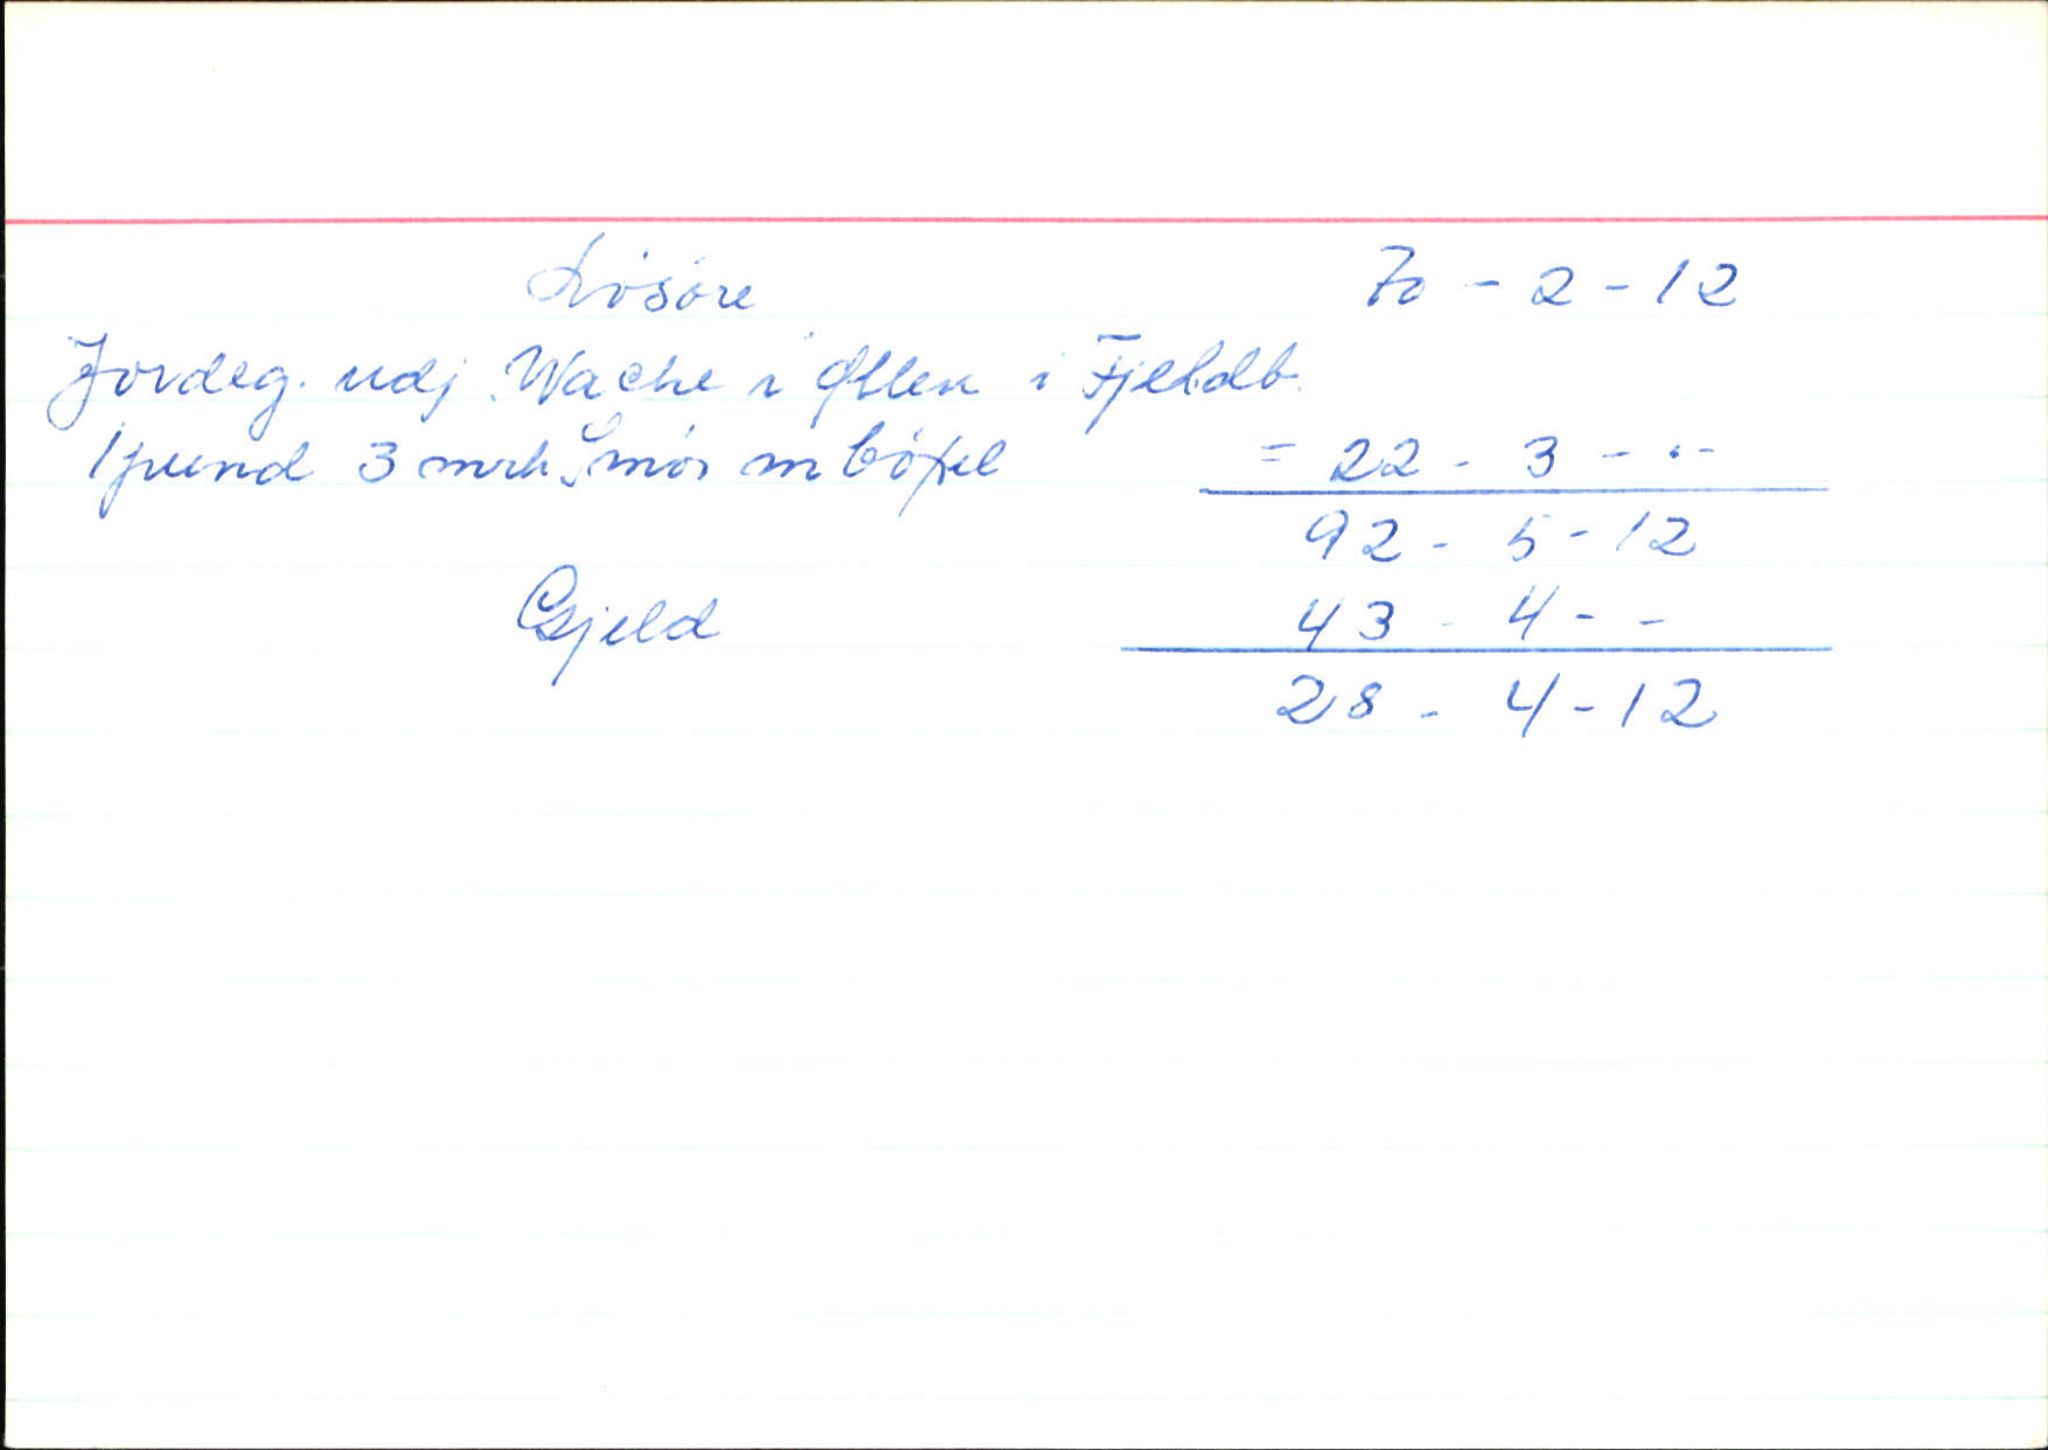 Lösöre 70 - 2 - 12
Jordeg. udj Wache i Ølen i Fjeldb.
1 pund 3 mrk Smör m böxel = 22 - 3 - . -
92 - 5 - 12
Gjeld 43 - 4 - -
28 - 4 - 12